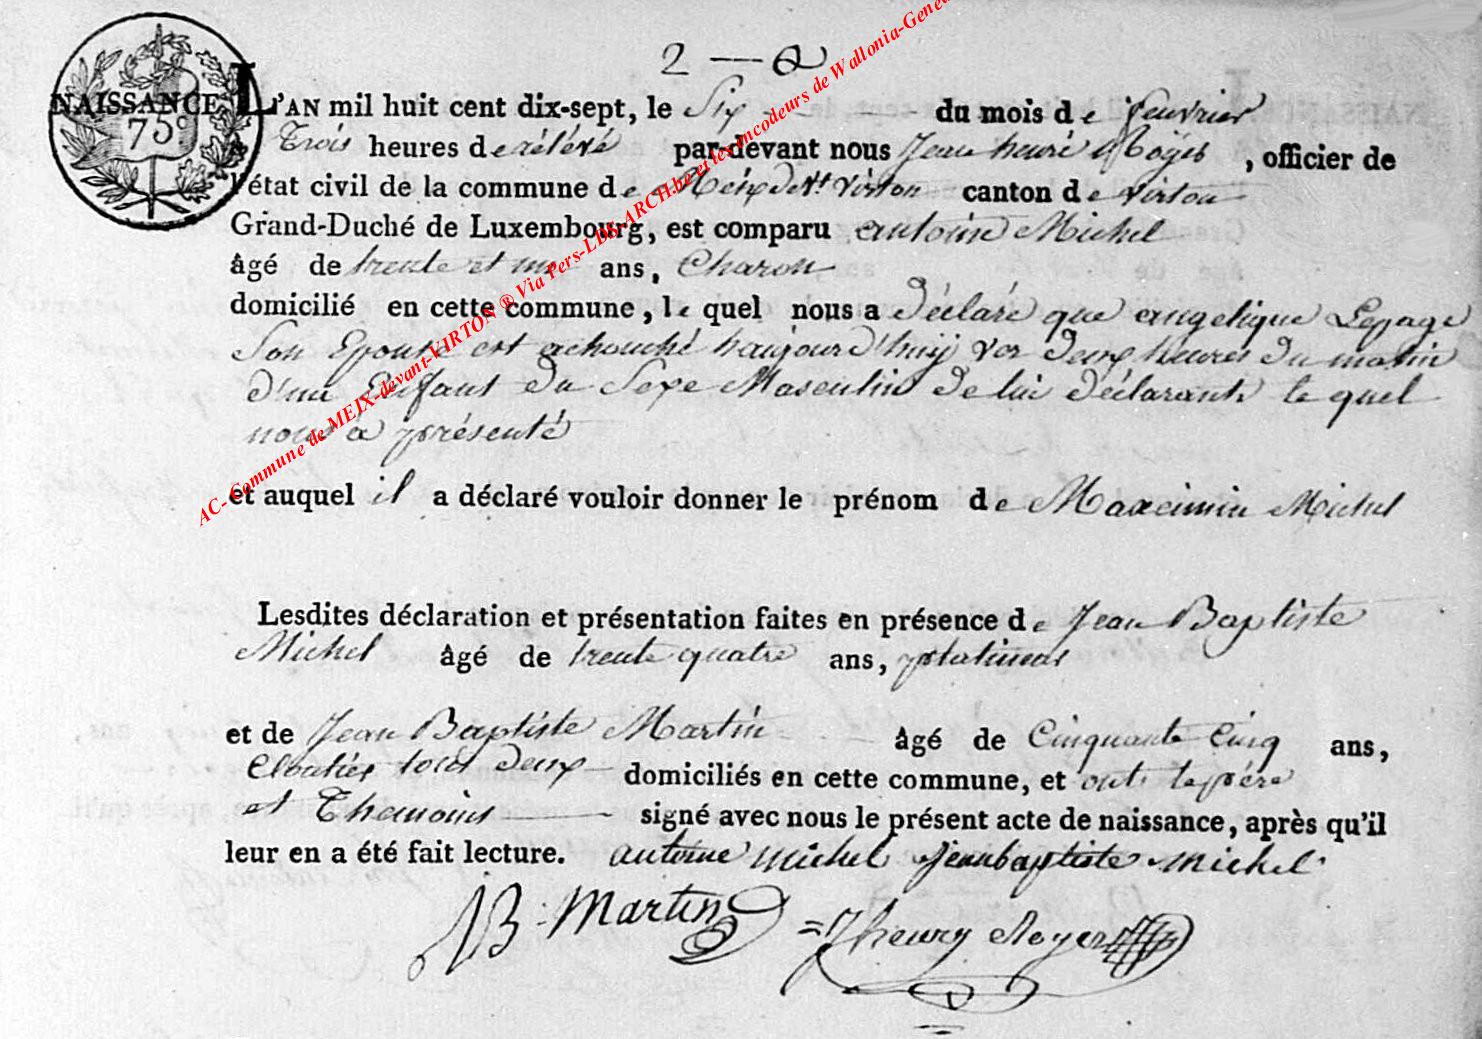 2 — a
NAISSANCE
75c
L'AN mil huit cent dix-sept, le Six du mois de fevrier
a Trois heures de rélévé par-devant nous Jean henri Noyer, officier de
l'état civil de la commune de Meix devt Virton canton de virton
Grand-Duché de Luxembourg, est comparu antoine Michel
âgé de trente et un ans, Charon
domicilié en cette commune, lequel nous a déclaré que angelique Lepage
Son Epouse est achouché haujourd'huÿ ver deux heures du matin
d'un Enfant du Sexe Masculin de lui déclarant le quel
nous à présenté
et auquel il a déclaré vouloir donner le prénom de Maximin Michel
Lesdites déclaration et présentation faites en présence de Jean Baptiste
Michel âgé de trente quatre ans,
et de Jean Baptiste Martin âgé de Cinquante Cinq ans,
Cloutier tous deux domiciliés en cette commune, et ont le père
et Themoins signé avec nous le présent acte de naissance, après qu'il
leur en a été fait lecture. antoine michel jeanbaptiste michel
JB. Martin = Jhenry Noyer
AC- Commune de MEIX-devant-VIRTON ® Via Pers-LDB-ARCH.be et les encodeurs de Wallonia-Gene